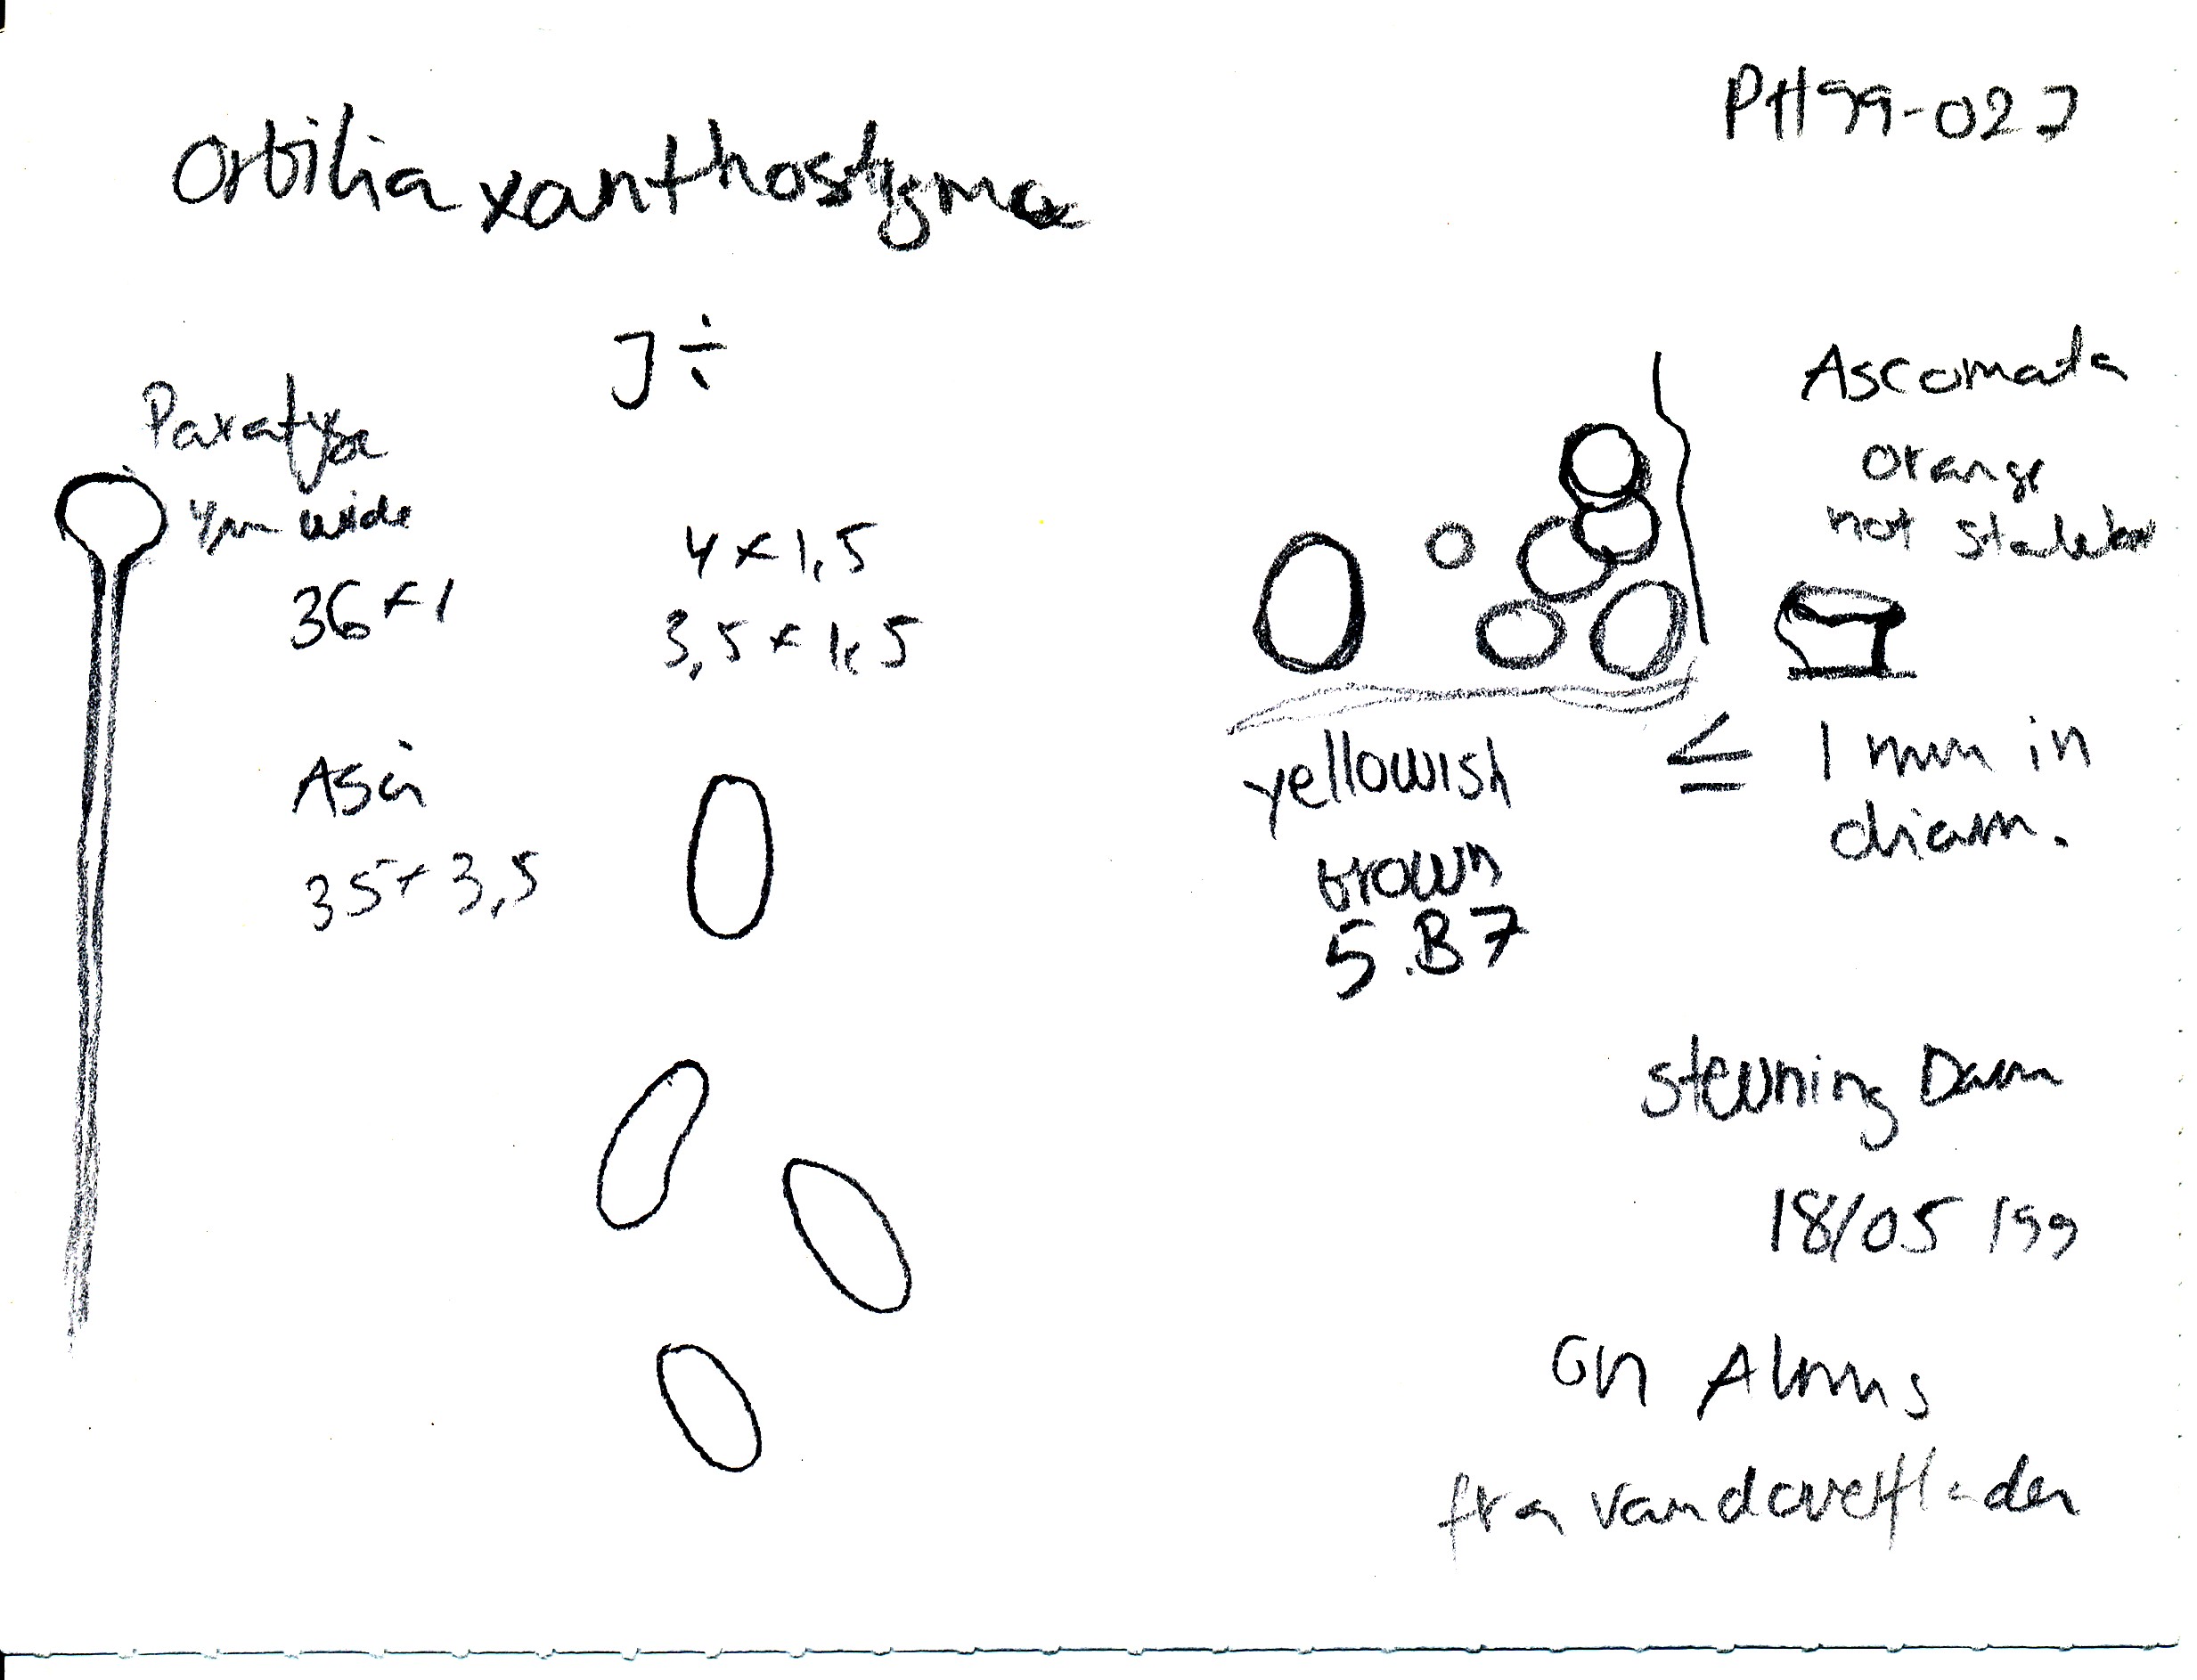 PH99-027
Orbilia xanthostigma
J ÷
Parafyse
4µm wide
36 x 1
4 x 1,5
3,5 x 1,5
Asci
35 x 3,5
Ascomata
orange
not
≤ 1 mm in
diam.
yellowish
brown
5.B7
Stevning Dam
18/05 199
On Alnus
fra vandoverfladen